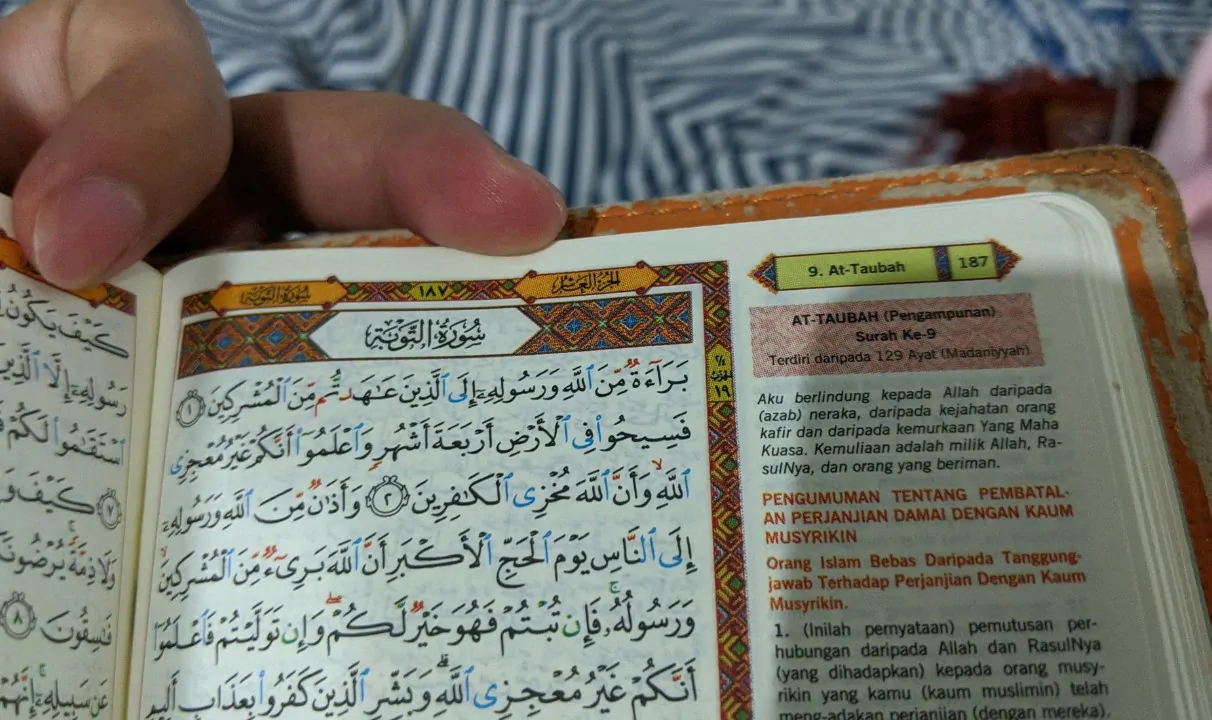 سُورَةُ التَّوْبَةِ
١٨٧
الجُزْءُ العَاشِرُ
سُورَةُ التَّوْبَةِ
بَرَآءَةٌ مِّنَ ٱللَّهِ وَرَسُولِهِۦٓ إِلَى ٱلَّذِينَ عَـٰهَدتُّم مِّنَ ٱلْمُشْرِكِينَ ١
فَسِيحُوا۟ فِى ٱلْأَرْضِ أَرْبَعَةَ أَشْهُرٍ وَٱعْلَمُوٓا۟ أَنَّكُمْ غَيْرُ مُعْجِزِى
ٱللَّهِ وَأَنَّ ٱللَّهَ مُخْزِى ٱلْكَـٰفِرِينَ ٢ وَأَذَٰنٌ مِّنَ ٱللَّهِ وَرَسُولِهِۦٓ
إِلَى ٱلنَّاسِ يَوْمَ ٱلْحَجِّ ٱلْأَكْبَرِ أَنَّ ٱللَّهَ بَرِىٓءٌ مِّنَ ٱلْمُشْرِكِينَ
وَرَسُولُهُۥ فَإِن تُبْتُمْ فَهُوَ خَيْرٌ لَّكُمْ وَإِن تَوَلَّيْتُمْ فَٱعْلَمُوٓا۟
أَنَّكُمْ غَيْرُ مُعْجِزِى ٱللَّهِ وَبَشِّرِ ٱلَّذِينَ كَفَرُوا۟ بِعَذَابٍ أَلِيمٍ
١٩
9. At-Taubah 187
AT-TAUBAH (Pengampunan)
Surah Ke-9
Terdiri daripada 129 Ayat (Madaniyyah)
Aku berlindung kepada Allah daripada
(azab) neraka, daripada kejahatan orang
kafir dan daripada kemurkaan Yang Maha
Kuasa. Kemuliaan adalah milik Allah, Ra-
sulNya, dan orang yang beriman.
PENGUMUMAN TENTANG PEMBATAL-
AN PERJANJIAN DAMAI DENGAN KAUM
MUSYRIKIN
Orang Islam Bebas Daripada Tanggung-
jawab Terhadap Perjanjian Dengan Kaum
Musyrikin.
1. (Inilah pernyataan) pemutusan per-
hubungan daripada Allah dan RasulNya
(yang dihadapkan) kepada orang musy-
rikin yang kamu (kaum muslimin) telah
meng-adakan perjanjian (dengan mereka).
كَيْفَ يَكُونُ
رَسُولِهِۦٓ إِلَّا ٱلَّذِينَ
ٱسْتَقَـٰمُوا۟ لَكُمْ
٧ كَيْفَ وَ
وَلَا ذِمَّةً يُرْضُونَ
فَـٰسِقُونَ ٨
عَن سَبِيلِهِۦٓ إِنَّهُمْ